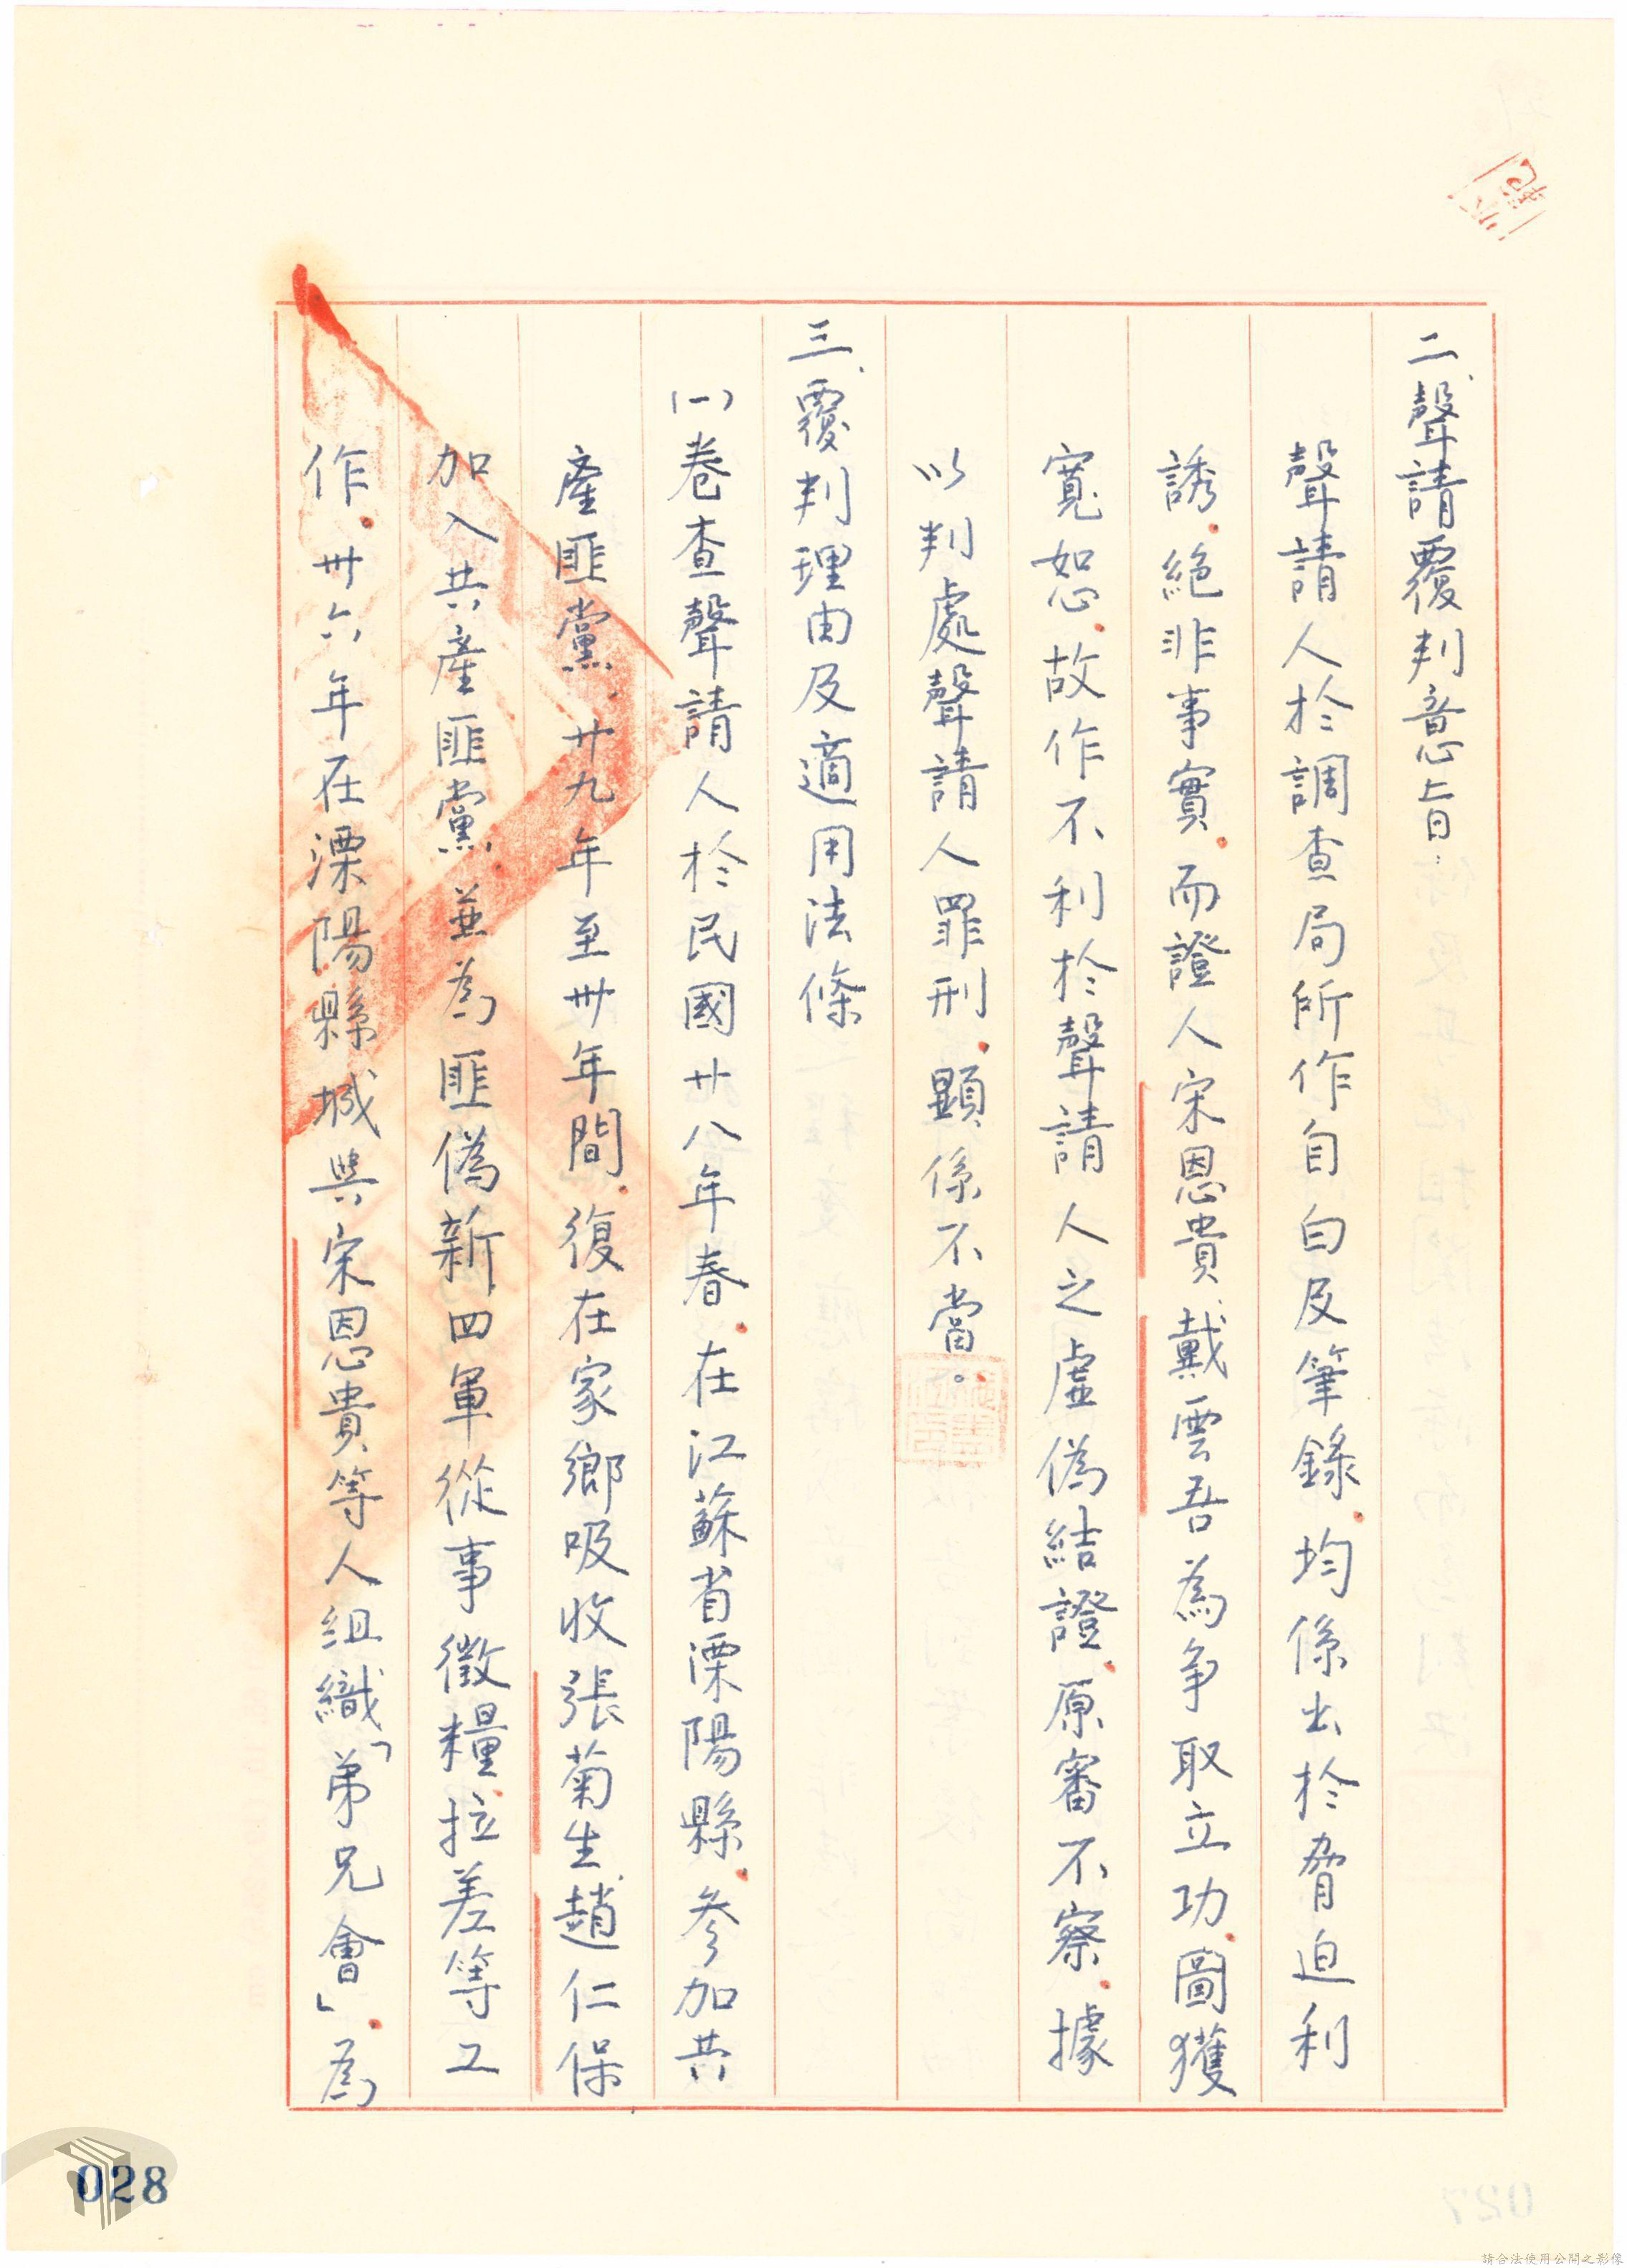 二、聲請覆判意旨：
聲請人於調查局所作自白及筆錄，均係出於脅迫利
誘，絕非事實，而證人宋恩貴、戴雲吾為争取立功，圖獲
寬恕，故作不利於聲請人之虛偽結證，原審不察，據
以判處聲請人罪刑，顯係不當。
三、覆判理由及適用法條
(一)卷查聲請人於民國廿八年春，在江蘇省溧陽縣，參加共
產匪黨，廿九年至卅年間，復在家鄉吸收張菊生、趙仁保
加入共產匪黨，並為匪偽新四軍從事徵糧，拉差等工
作，卅六年在溧陽縣城與宋恩貴等人組織「弟兄會」，為
028
027
請合法使用公開之影像